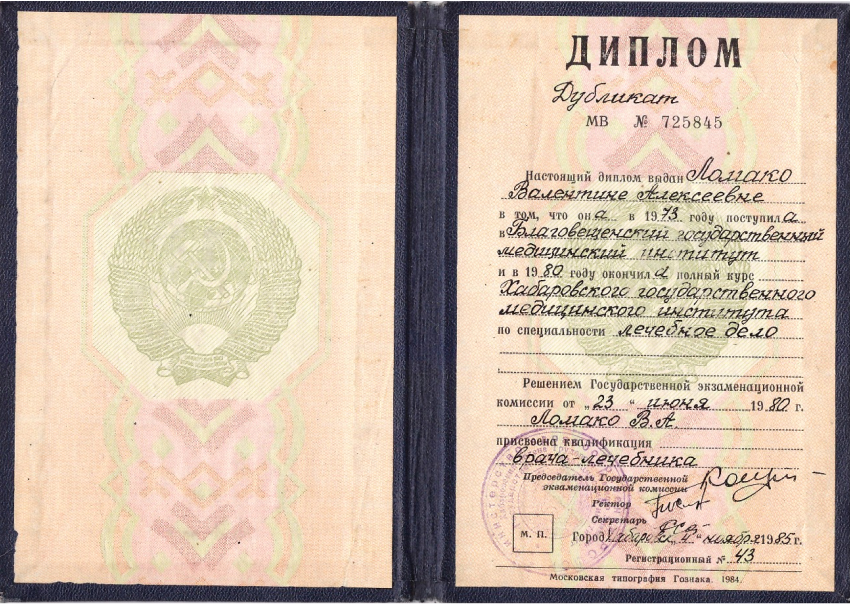 ДИПЛОМ
Дубликат
МВ № 725845
Настоящий диплом выдан Ломако
Валентине Алексеевне
в том, что она в 1973 году поступила
в Благовещенский государственный
медицинский институт
и в 1980 году окончила полный курс
Хабаровского государственного
медицинского института
по специальности лечебное дело
Решением Государственной экзаменационной
комиссии от „23" июня 1980 г.
Ломако В.А.
присвоена квалификация
врача-лечебника
Председатель Государственной
экзаменационной комиссии
Ректор
Секретарь
М. П.
Город Хабаровск ноября 1985 г.
Регистрационный № 43
Московская типография Гознака. 1984.